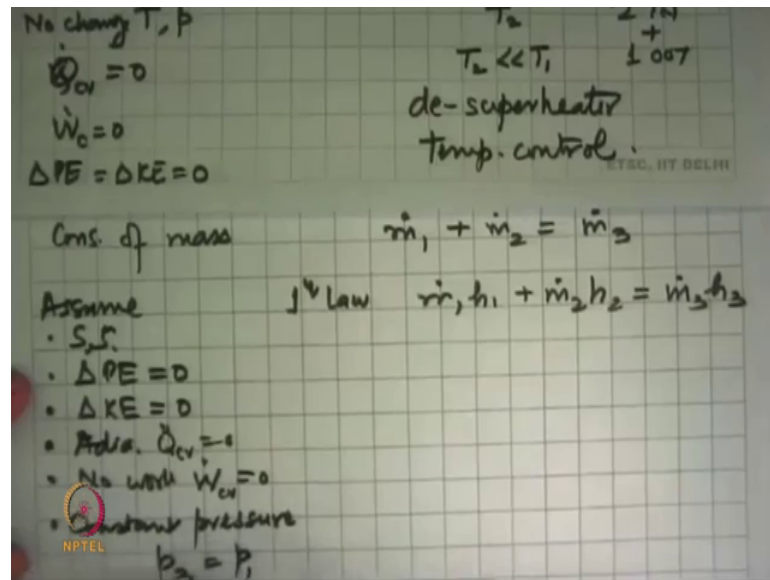 No change T, p
Q̇cv = 0
Ẇc = 0
ΔPE = ΔKE = 0
T2 2 IN
+
T2 << T1 1 OUT
de-superheater
temp. control.
ETSC, IIT DELHI
Cons. of mass ṁ1 + ṁ2 = ṁ3
Assume 1st Law ṁ1h1 + ṁ2h2 = ṁ3h3
• S.S.
• ΔPE = 0
• ΔKE = 0
• Adia. Q̇cv = 0
• No work Ẇcv = 0
• Constant pressure
NPTEL
= p1